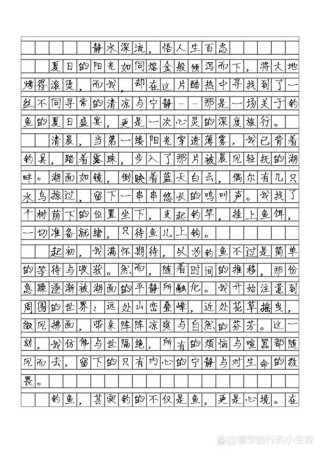 静水深流，悟人生百态
夏日的阳光如同熔金般倾泻而下，将大地
烤得滚烫，而我，却在这片酷热中寻找到了一
丝不同寻常的清凉与宁静——那是一场关于钓
鱼的夏日盛宴，更是一次心灵的深度旅行。
清晨，当第一缕阳光穿透薄雾，我已背着
钓具，踏着露珠，步入了那片被晨风轻抚的湖
畔。湖面如镜，倒映着蓝天白云，偶尔有几只
水鸟掠过，留下一串串悠长的鸣叫声。我找了
个树荫下的位置坐下，支起钓竿，挂上鱼饵，
一切准备就绪，只待鱼儿上钩。
起初，我满怀期待，以为钓鱼不过是简单
的等待与收获。然而，随着时间的推移，那份
急躁逐渐被湖面的平静所融化。我开始注意到
周围的世界：远处山峦叠嶂，近处花草摇曳，
微风拂面，带来阵阵凉爽与自然的芬芳。这一
刻，我仿佛与世隔绝，所有的烦恼与喧嚣都随
风而去，留下的只有内心的宁静与对生命的敬
畏。
钓鱼，其实钓的不仅是鱼，更是心境。在